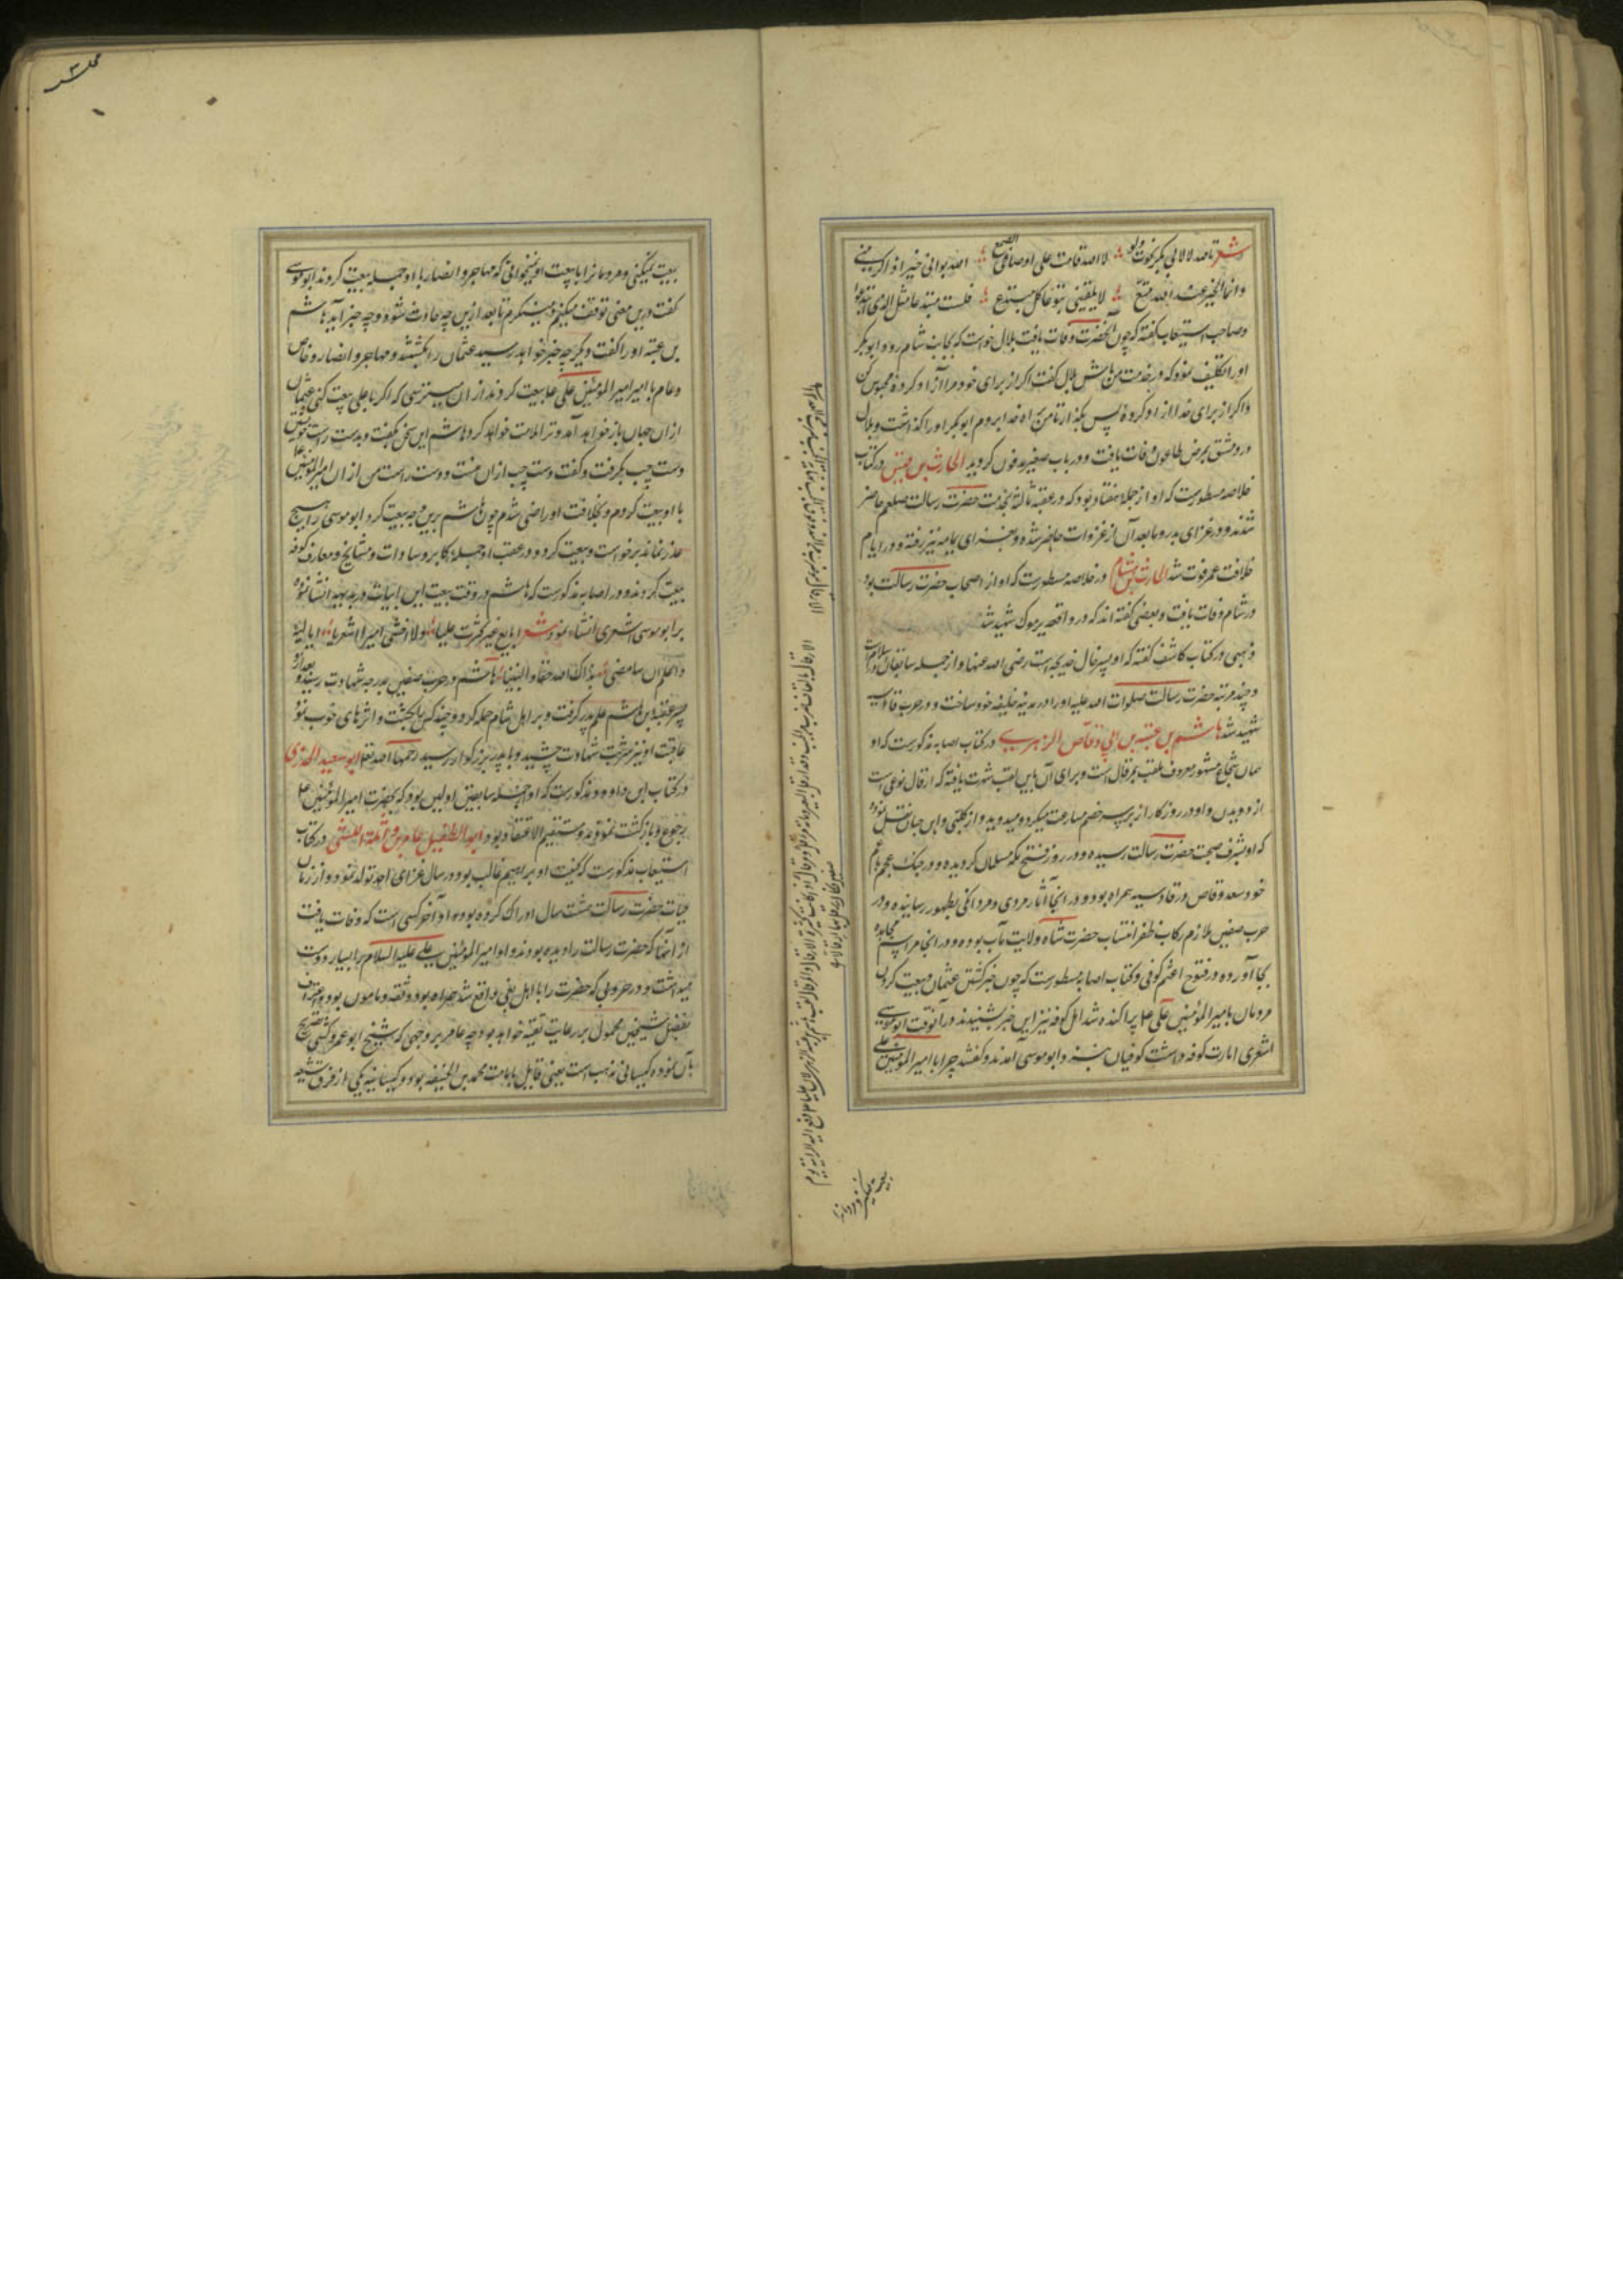 شعر تالله لا لابی بکر نجوت ولو لا الله قامت علی اوصالی الضبع الله بوانی خیرا و اکرمنی
وانما الخیر عند الله متبع لا یلقینی تبوعا کل مبتدع فلست مبتدعا مثل الذی ابتدعوا
و صاحب استیعاب گفته که چون آنحضرت وفات یافت بلال خواست که بجانب شام رود ابوبکر
او را تکلیف نمود که در خدمت من باش بلال گفت اگر از برای خود مرا آزاد کردهٔ محبوس کن
و اگر از برای خدا آزاد کردهٔ پس بگذار تا من براه خدا بروم ابوبکر او را گذاشت و بلال
در دمشق بمرض طاعون وفات یافت و در باب صغیر مدفون گردید الحارث بن قیس در کتاب
خلاصه مسطورست که او از جمله هفتاد بود که در عقبه ثالثه بخدمت حضرت رسالت صلعم حاضر
شدند و در غزای بدر و ما بعد آن از غزوات حاضر شده و بغزای یمامه نیز رفته و در ایام
خلافت عمر فوت شد الحارث بن هشام در خلاصه مسطورست که او از اصحاب حضرت رسالت بود
در شام وفات یافت و بعضی گفته اند که در واقعه یرموک شهید شد
ذهبی در کتاب کاشف گفته که او پسر خال خدیجه است رضی الله عنها و از جمله سابقان در اسلام است
و چند مرتبه حضرت رسالت صلوات الله علیه او را در مدینه خلیفه خود ساخت و در حرب قادسیه
شهید شد هاشم بن عتبه بن ابی وقاص الزهری در کتاب اصابه مذکورست که او
همان شجاع مشهور معروف ملقب بمرقال است و برای آن باین لقب شهرت یافته که ارقال نوعی است
از دویدن و او در روز کارزار بر سر خصم مسارعت میکرد و میدوید و از کلبی و ابن حبان نقل نموده
که او بشرف صحبت حضرت رسالت رسیده و در روز فتح مکه مسلمان گردیده و در جنک عجم با عم
خود سعد وقاص در قادسیه همراه بود و در آنجا آثار مردی و مردانگی بظهور رسانیده و در
حرب صفین ملازم رکاب ظفر انتساب حضرت شاه ولایت مآب بوده و در آنجا مراسم مجاهده
بجا آورده و در فتوح اعثم کوفی و کتاب اصابه مسطورست که چون خبر کشتن عثمان و بیعت کردن
مردمان با امیرالمؤمنین علی ع پراکنده شد اهل کوفه نیز این خبر بشنیدند در آنوقت ابوموسی
اشعری امارت کوفه داشت کوفیان نزد ابوموسی آمدند و گفتند چرا با امیرالمؤمنین علی
بیعت نمیکنی و مردمانرا
بیعت نمیکنی و مردمانرا با بیعت او نمیخوانی که مهاجر و انصار با او جمله بیعت کردند ابوموسی
گفت درین معنی توقف میکنم و مینگرم تا بعد ازین چه حادث شود و چه خبر آید هاشم
بن عتبه او را گفت دیگر چه خبر خواهد رسید عثمان را بکشتند و مهاجر و انصار و خاص
و عام با امیر امیرالمؤمنین علی ع بیعت کردند از آن میترسی که اگر با علی بیعت کنی عثمان
از آن جهان باز خواهد آمد و ترا ملامت خواهد کرد هاشم این سخن بگفت و بدست راست خویش
دست چپ بگرفت و گفت دست چپ از آن منست و دست راست من از آن امیرالمؤمنین ع
با او بیعت کردم و بخلافت او راضی شدم چون هاشم برین وجه بیعت کرد ابوموسی را هیچ
عذر نماند برخواست و بیعت کرد و در عقب او جمله اکابر و سادات و مشایخ و معارف کوفه
بیعت کردند و در اصابه مذکورست که هاشم در وقت بیعت این ابیات در بدیهه انشا نموده
بر ابوموسی اشعری انشاء نمود شعر ابایع غیر مکترث علیا ولا اخشی امیرا اشعریا ابایعه
واعلم ان سارضی بذاک الله حقا والنبیا هاشم در حرب صفین بدرجه شهادت رسید و بعد از او
پسر عتبه بن هاشم علم پدر گرفت و بر اهل شام حمله کرد و چند کس را بکشت و اثرهای خوب نمود
عاقبت او نیز شربت شهادت چشید و با پدر بزرگوار رسید رحمهما الله تعالی ابوسعید الخدری
در کتاب ابن داود مذکورست که او از جمله سابقین اولین بود که بحضرت امیرالمؤمنین ع
رجوع و بازگشت نمودند و مستقیم الاعتقاد بود ابوالطفیل عامر بن واثلة اللیثی در کتاب
استیعاب مذکورست که کنیت او بر اسم غالب بود و در سال غزای احد تولد نمود و از زمان
حیات حضرت رسالت هشت سال ادراک کرده بود و او آخر کسی است که وفات یافت
از آنها که حضرت رسالت را دیده بودند و او امیرالمؤمنین علی علیه السلام را بسیار دوست
میداشت و در حروبی که حضرت را با اهل بغی واقع شد همراه بود و ثقه و مامون بود و اعتراف
بفضل شیخین محمول بر رعایت تقیه خواهد بود چه عامر بر وجهی که شیخ ابوعمرو کشی تصریح
بآن نموده کیسانی مذهب است یعنی قایل بامامت محمد بن الحنفیه بود و کیسانیه یکی از فرق شیعه